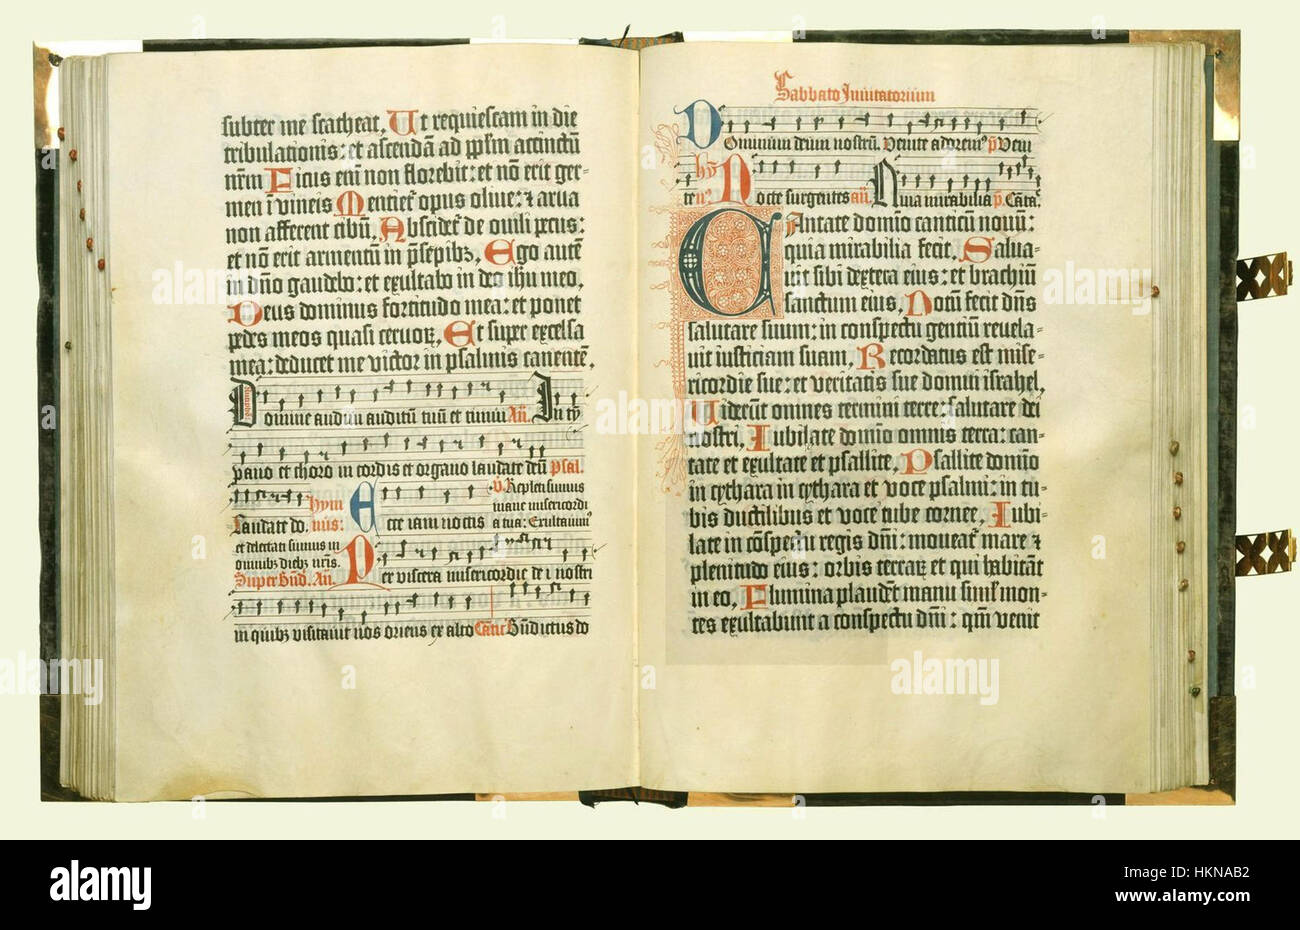 subter me scatheat. Ut requiescam in die
tribulationis: et ascendā ad pplm accinctū
nrm Ficus eni non florebit: et nō erit ger-
men ī vineis Mentiet opus olive: et arua
non afferent cibū. Abscidet de ouili pecus:
et nō erit armentū in psepibꝫ. Ego autē
in dno gaudebo: et exultabo in deo ihu meo.
Deus dominus fortitudo mea: et ponet
pedes meos quasi ceruoꝝ. Et super excelsa
mea: deducet me victor in psalmis canentē.
Domine audiui auditū tuū et timui Añ. In ty
pano et choro in cordis et organo laudate deū Psal.
Laudate do. hym nus: Ecce iam noctis
V Repleti sumus
mane misericordi
a tua: Exultauimꝰ
et delectati sumus in
omnibꝫ diebꝫ nris.
Super Bñd. Añ. Per viscera misericordie dei nostri
in quibꝫ visitauit nos oriens ex alto Cātic Bñdictus do
Sabbato Inuitatorium
Dominum deum nostrū. Venite adoremꝰ p Veni
te hy nꝰ. Nocte surgentes añ. Quia mirabilia p. Cāta.
CAntate domino canticū nouū:
quia mirabilia fecit. Salua-
uit sibi dextera eius: et brachiū
sanctum eius. Notū fecit dns
salutare suum: in conspectu gentiū reuela-
uit iusticiam suam. Recordatus est mise-
ricordie sue: et veritatis sue domui israhel.
Uiderūt omnes termini terre: salutare dei
nostri. Iubilate domino omnis terra: can-
tate et exultate et psallite. Psallite domino
in cythara in cythara et voce psalmi: in tu-
bis ductilibus et voce tube cornee. Iubi-
late in cōspectu regis dni: moueat mare et
plenitudo eius: orbis terraꝝ et qui habitāt
in eo. Flumina plaudēt manu simul mon-
tes exultabunt a conspectu dni: qm venit
alamy
alamy
Image ID: HKNAB2
www.alamy.com